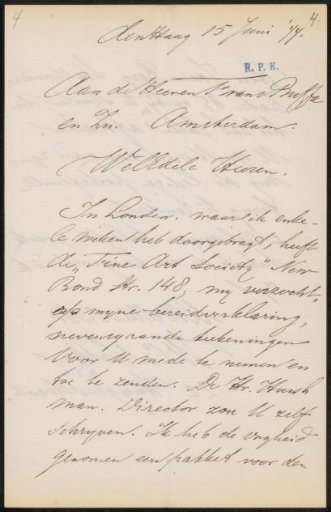 4 4.
den Haag 15 Juni '77.
R. P. K.
Aan de Heeren Frans Buffa
en Zn. Amsterdam.
WelEdele Heeren.
In Londen, waar ik enke-
le weken heb doorgebragt, heeft
de "Fine Art Society" New
Bond Str. 148, my verzocht,
op myne bereidverklaring,
nevensgaande teekeningen
voor U mede te nemen en
toe te zenden. De Hr. Huish
man. Director zou U zelf
schryven. Ik heb de vryheid
genomen een pakket voor den